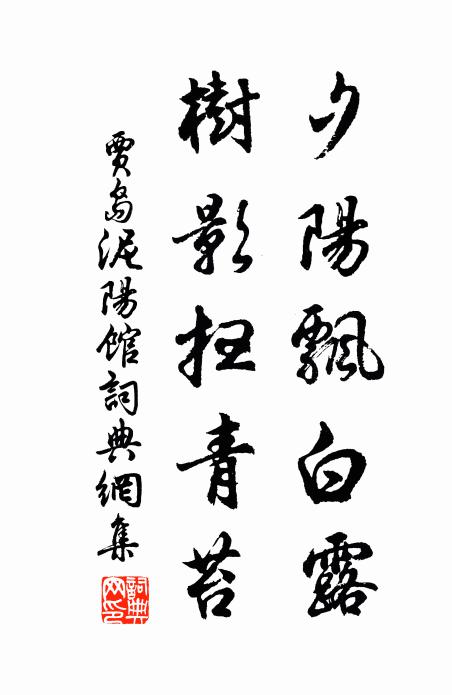 夕陽飄白露
樹影掃青苔
賈島泥陽館詞典網集
詞典網印